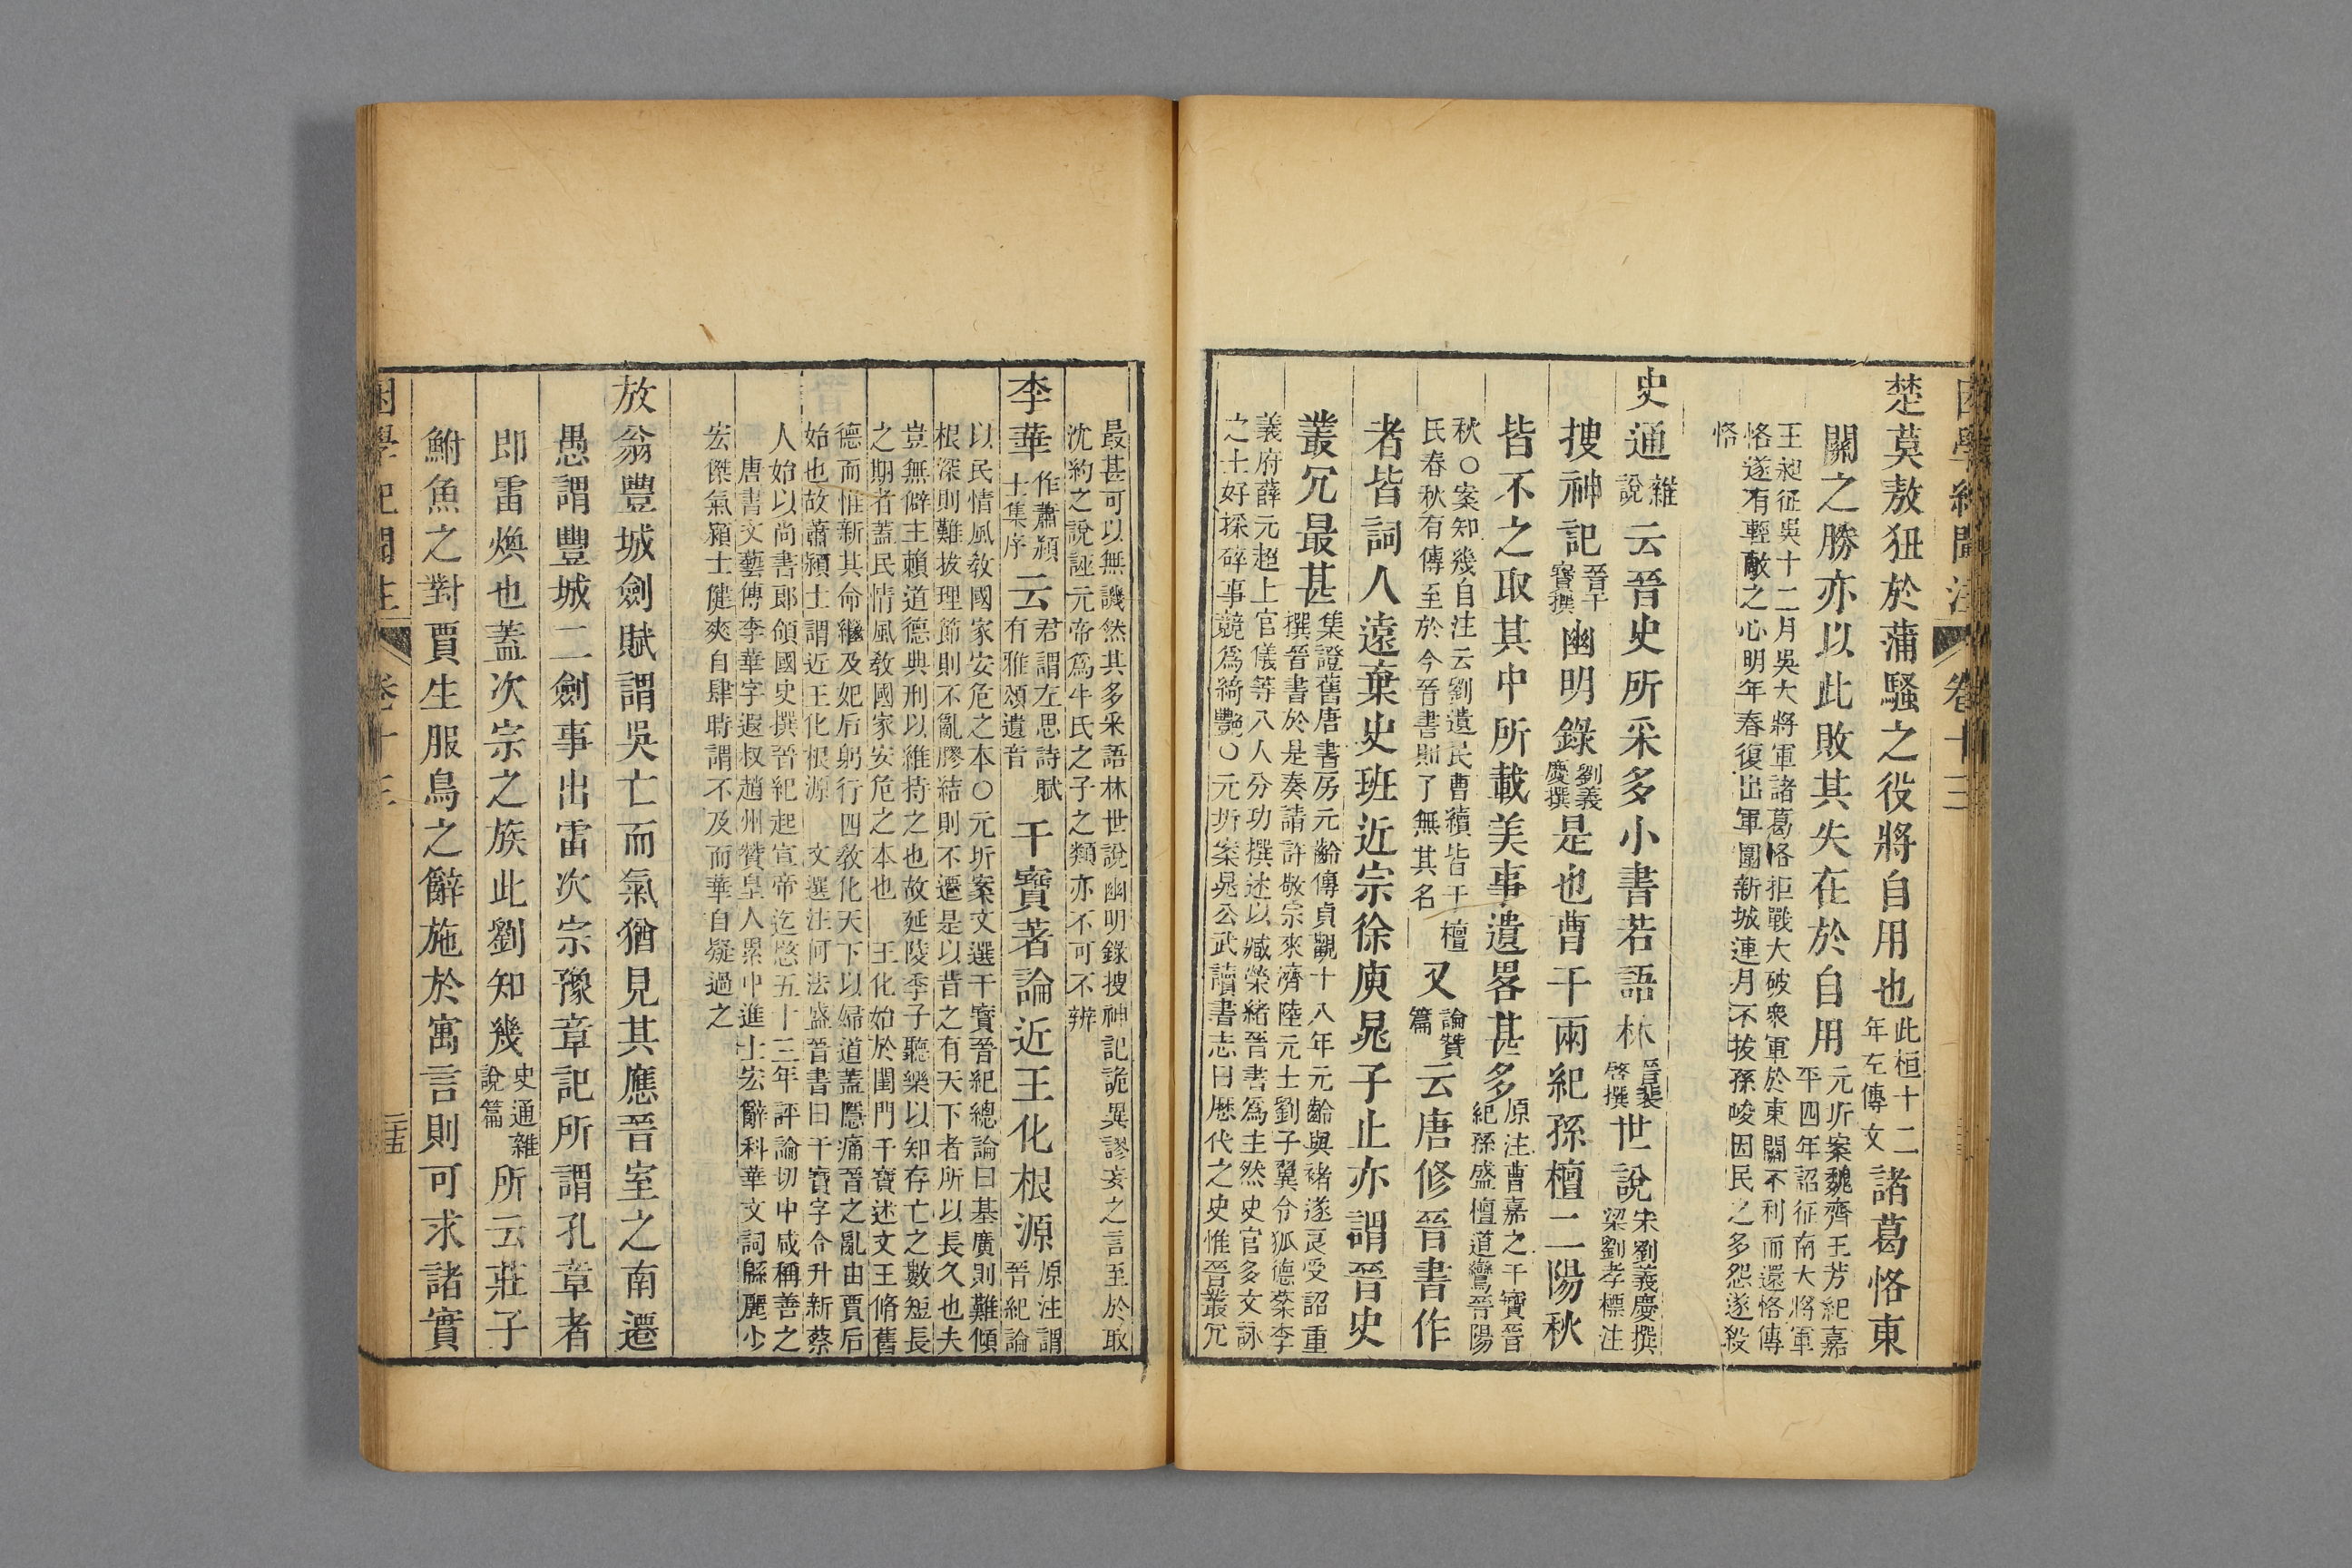 困學紀聞注 卷十三
楚莫敖狃於蒲騷之役將自用也此桓十二年左傳文諸葛恪東
關之勝亦以此敗其失在於自用元圻案魏齊王芳紀嘉平四年詔征南大將軍
王昶征吳十二月吳大將軍諸葛恪拒戰大破衆軍於東關不利而還恪傳
恪遂有輕敵之心明年春復出軍圍新城連月不拔孫峻因民之多怨遂殺
恪
史通雜說云晉史所采多小書若語林晉裴啓撰世說宋劉義慶撰梁劉孝標注
搜神記晉干寶撰幽明錄劉義慶撰是也曹干兩紀孫檀二陽秋
皆不之取其中所載美事遺畧甚多原注曹嘉之干寶晉紀孫盛檀道鸞晉陽
秋○案知幾自注云劉遺民曹續皆于檀
民春秋有傳至於今晉書則了無其名
又論贊篇云唐修晉書作
者皆詞人遠棄史班近宗徐庾晁子止亦謂晉史
叢冗最甚集證舊唐書房元齡傳貞觀十八年元齡與褚遂良受詔重
撰晉書於是奏請許敬宗來濟陸元士劉子翼令狐德棻李
義府薛元超上官儀等八人分功撰述以臧榮緒晉書爲主然史官多文詠
之士好採碎事競爲綺艷○元圻案晁公武讀書志曰歷代之史惟晉叢冗
最甚可以無譏然其多采語林世說幽明錄搜神記詭異謬妄之言至於取
沈約之說誣元帝爲牛氏之子之類亦不可不辨
李華作蕭穎士集序云君謂左思詩賦有雅頌遺音干寶著論近王化根源原注謂晉紀論
以民情風敎國家安危之本○元圻案文選干寶晉紀總論曰基廣則難傾
根深則難拔理節則不亂膠結則不遷是以昔之有天下者所以長久也夫
豈無僻主賴道德典刑以維持之也故延陵季子聽樂以知存亡之數短長
之期者蓋民情風敎國家安危之本也 王化始於閨門干寶述文王脩舊
德而惟新其命繼及妃后躬行四敎化天下以婦道蓋隱痛晉之亂由賈后
始也故蕭穎士謂近王化根源 文選注何法盛晉書曰干寶字令升新蔡
人始以尚書郎領國史撰晉紀起宣帝迄愍五十三年評論切中咸稱善之
唐書文藝傳李華字遐叔趙州贊皇人累中進士宏辭科華文詞緜麗少
宏傑氣穎士健爽自肆時謂不及而華自疑過之
放翁豐城劍賦謂吳亡而氣猶見其應晉室之南遷
愚謂豐城二劍事出雷次宗豫章記所謂孔章者
即雷煥也蓋次宗之族此劉知幾史通雜說篇所云莊子
鮒魚之對賈生服鳥之辭施於寓言則可求諸實
困學紀聞注 卷十三 二十五